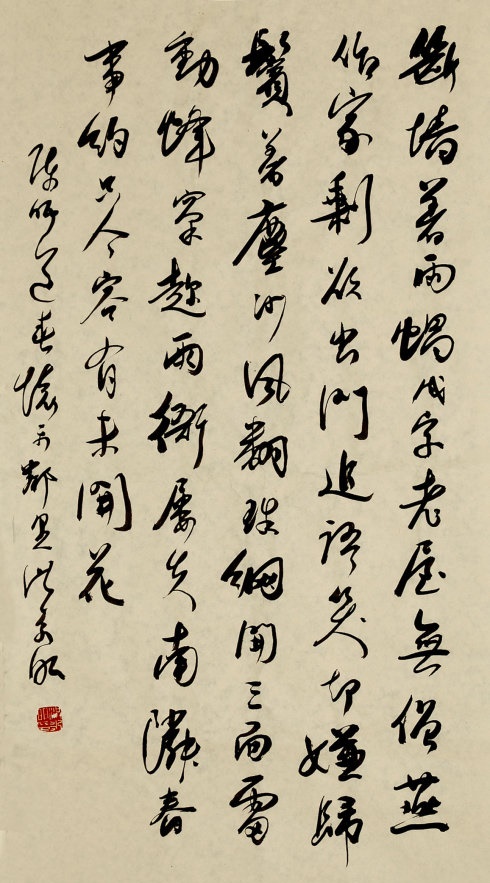 斷墙著雨蝸成字老屋無僧燕
作家剩欲出門追語笑却嫌歸
鬢著塵沙風翻蛛網開三面雷
動蜂窠趁兩衙屡失南隣春
事約只今容有未開花
陈师道春懷示鄰里洪